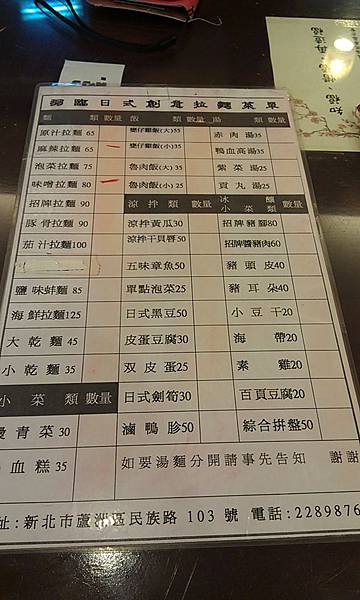 臨日式創意拉麵菜單
類 數量 飯 類 數量 湯 類 數量
原汁拉麵 65 雞仔雞飯(大)55 赤肉湯35
麻辣拉麵 65 雞仔雞飯(小)35 鴨血高湯35
泡菜拉麵 75 魯肉飯(大)35 紫菜湯25
味噌拉麵 80 魯肉飯(小)25 貢丸湯25
招牌拉麵 90 涼拌類 數量 冰釀小菜類 數量
豚骨拉麵 90 涼拌黃瓜30 招牌豬腳80
茄汁拉麵100 涼拌干貝唇50 招牌醬豬腳60
五味章魚50 豬頭皮40
鹽味蚌麵 85 單點泡菜25 豬耳朵40
海鮮拉麵125 日式黑豆50 小豆干20
大乾麵 45 皮蛋豆腐30 海帶20
小乾麵 35 双皮蛋25 素雞20
小菜類 數量 日式劍筍30 百頁豆腐20
燙青菜30 滷鴨胗50 綜合拼盤50
血糕 35 如要湯麵分開請事先告知 謝謝
址:新北市蘆洲區民族路 103 號 電話:2289876
知福
再造福